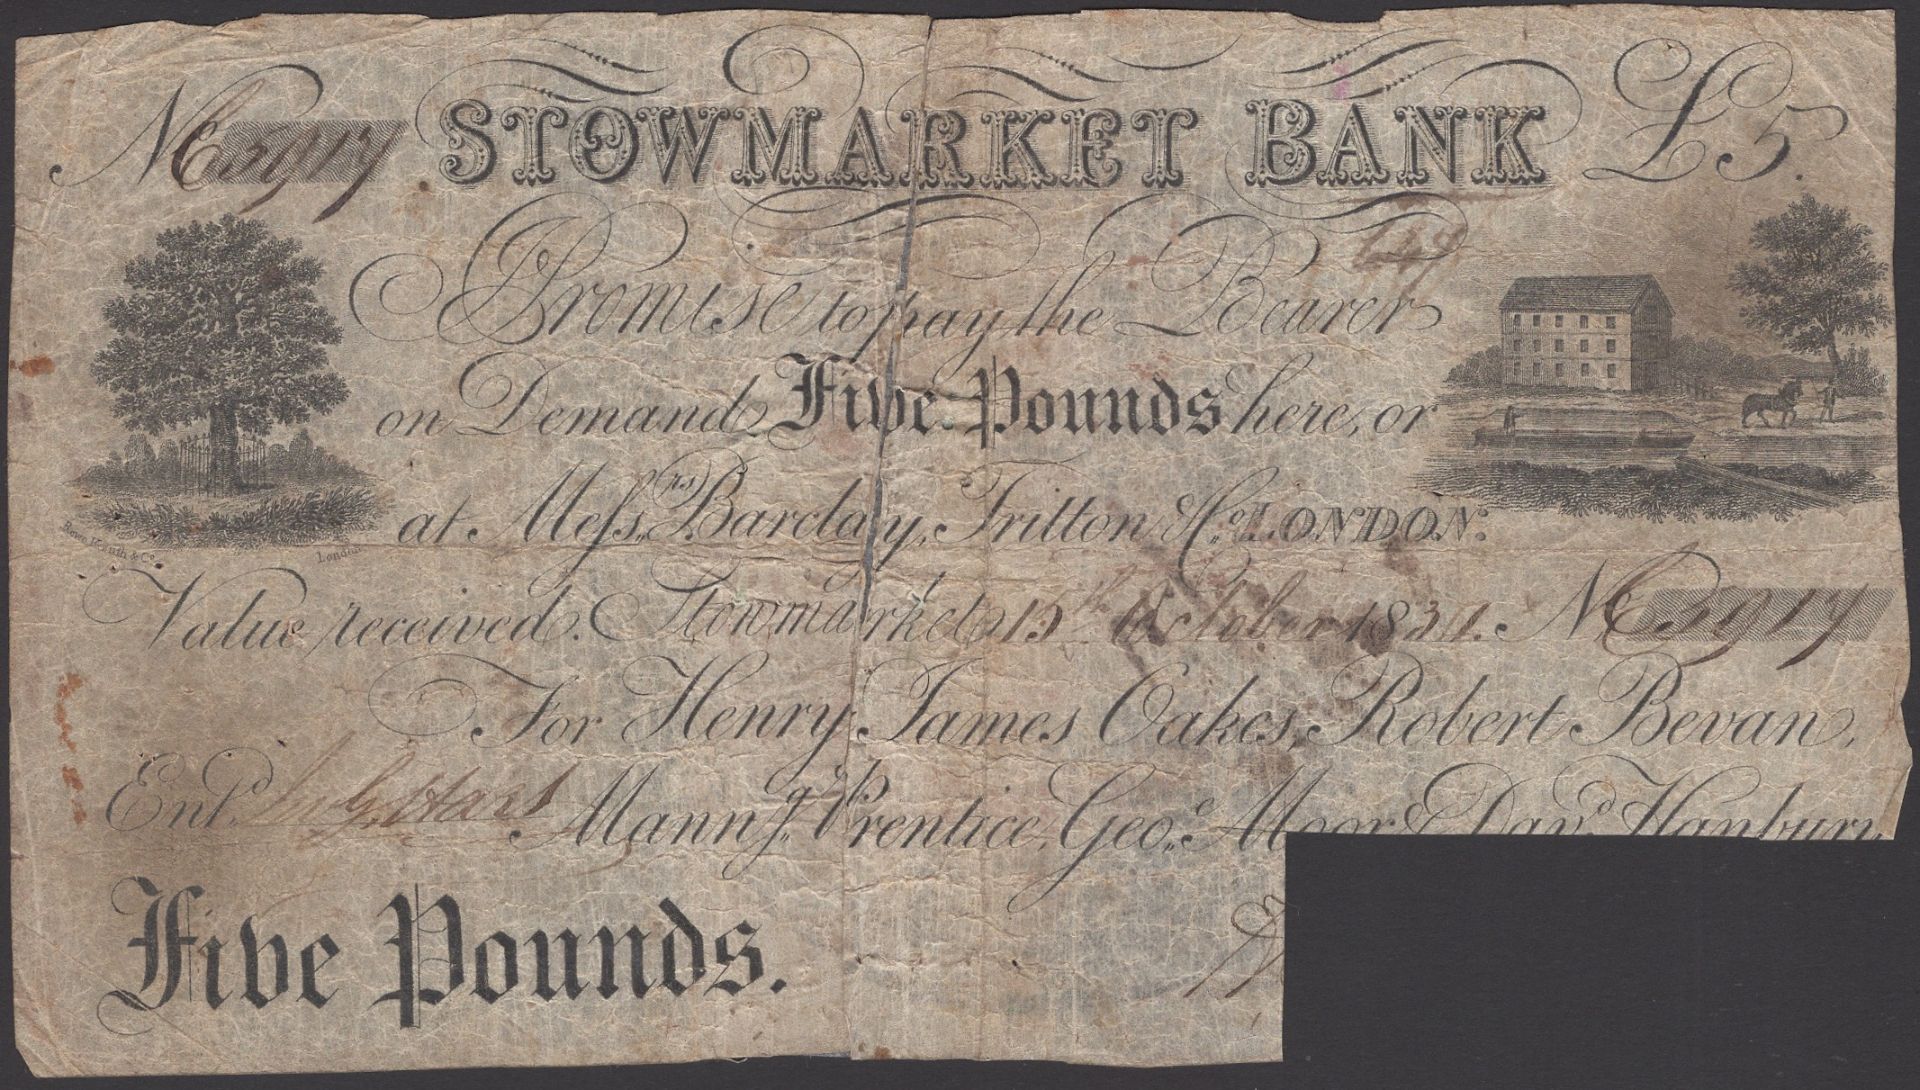 No C5917 STOWMARKET BANK £5.
I Promise to pay the Bearer
on Demand Five Pounds here, or
at Messrs. Barclay, Tritton & Co. LONDON.
London
Value received. Stowmarket 15th October 1831. No C5917
For Henry James Oakes, Robert Bevan,
Entd. Manng. Prentice, Geoe. Moor & Davd. Hanbury
Five Pounds.